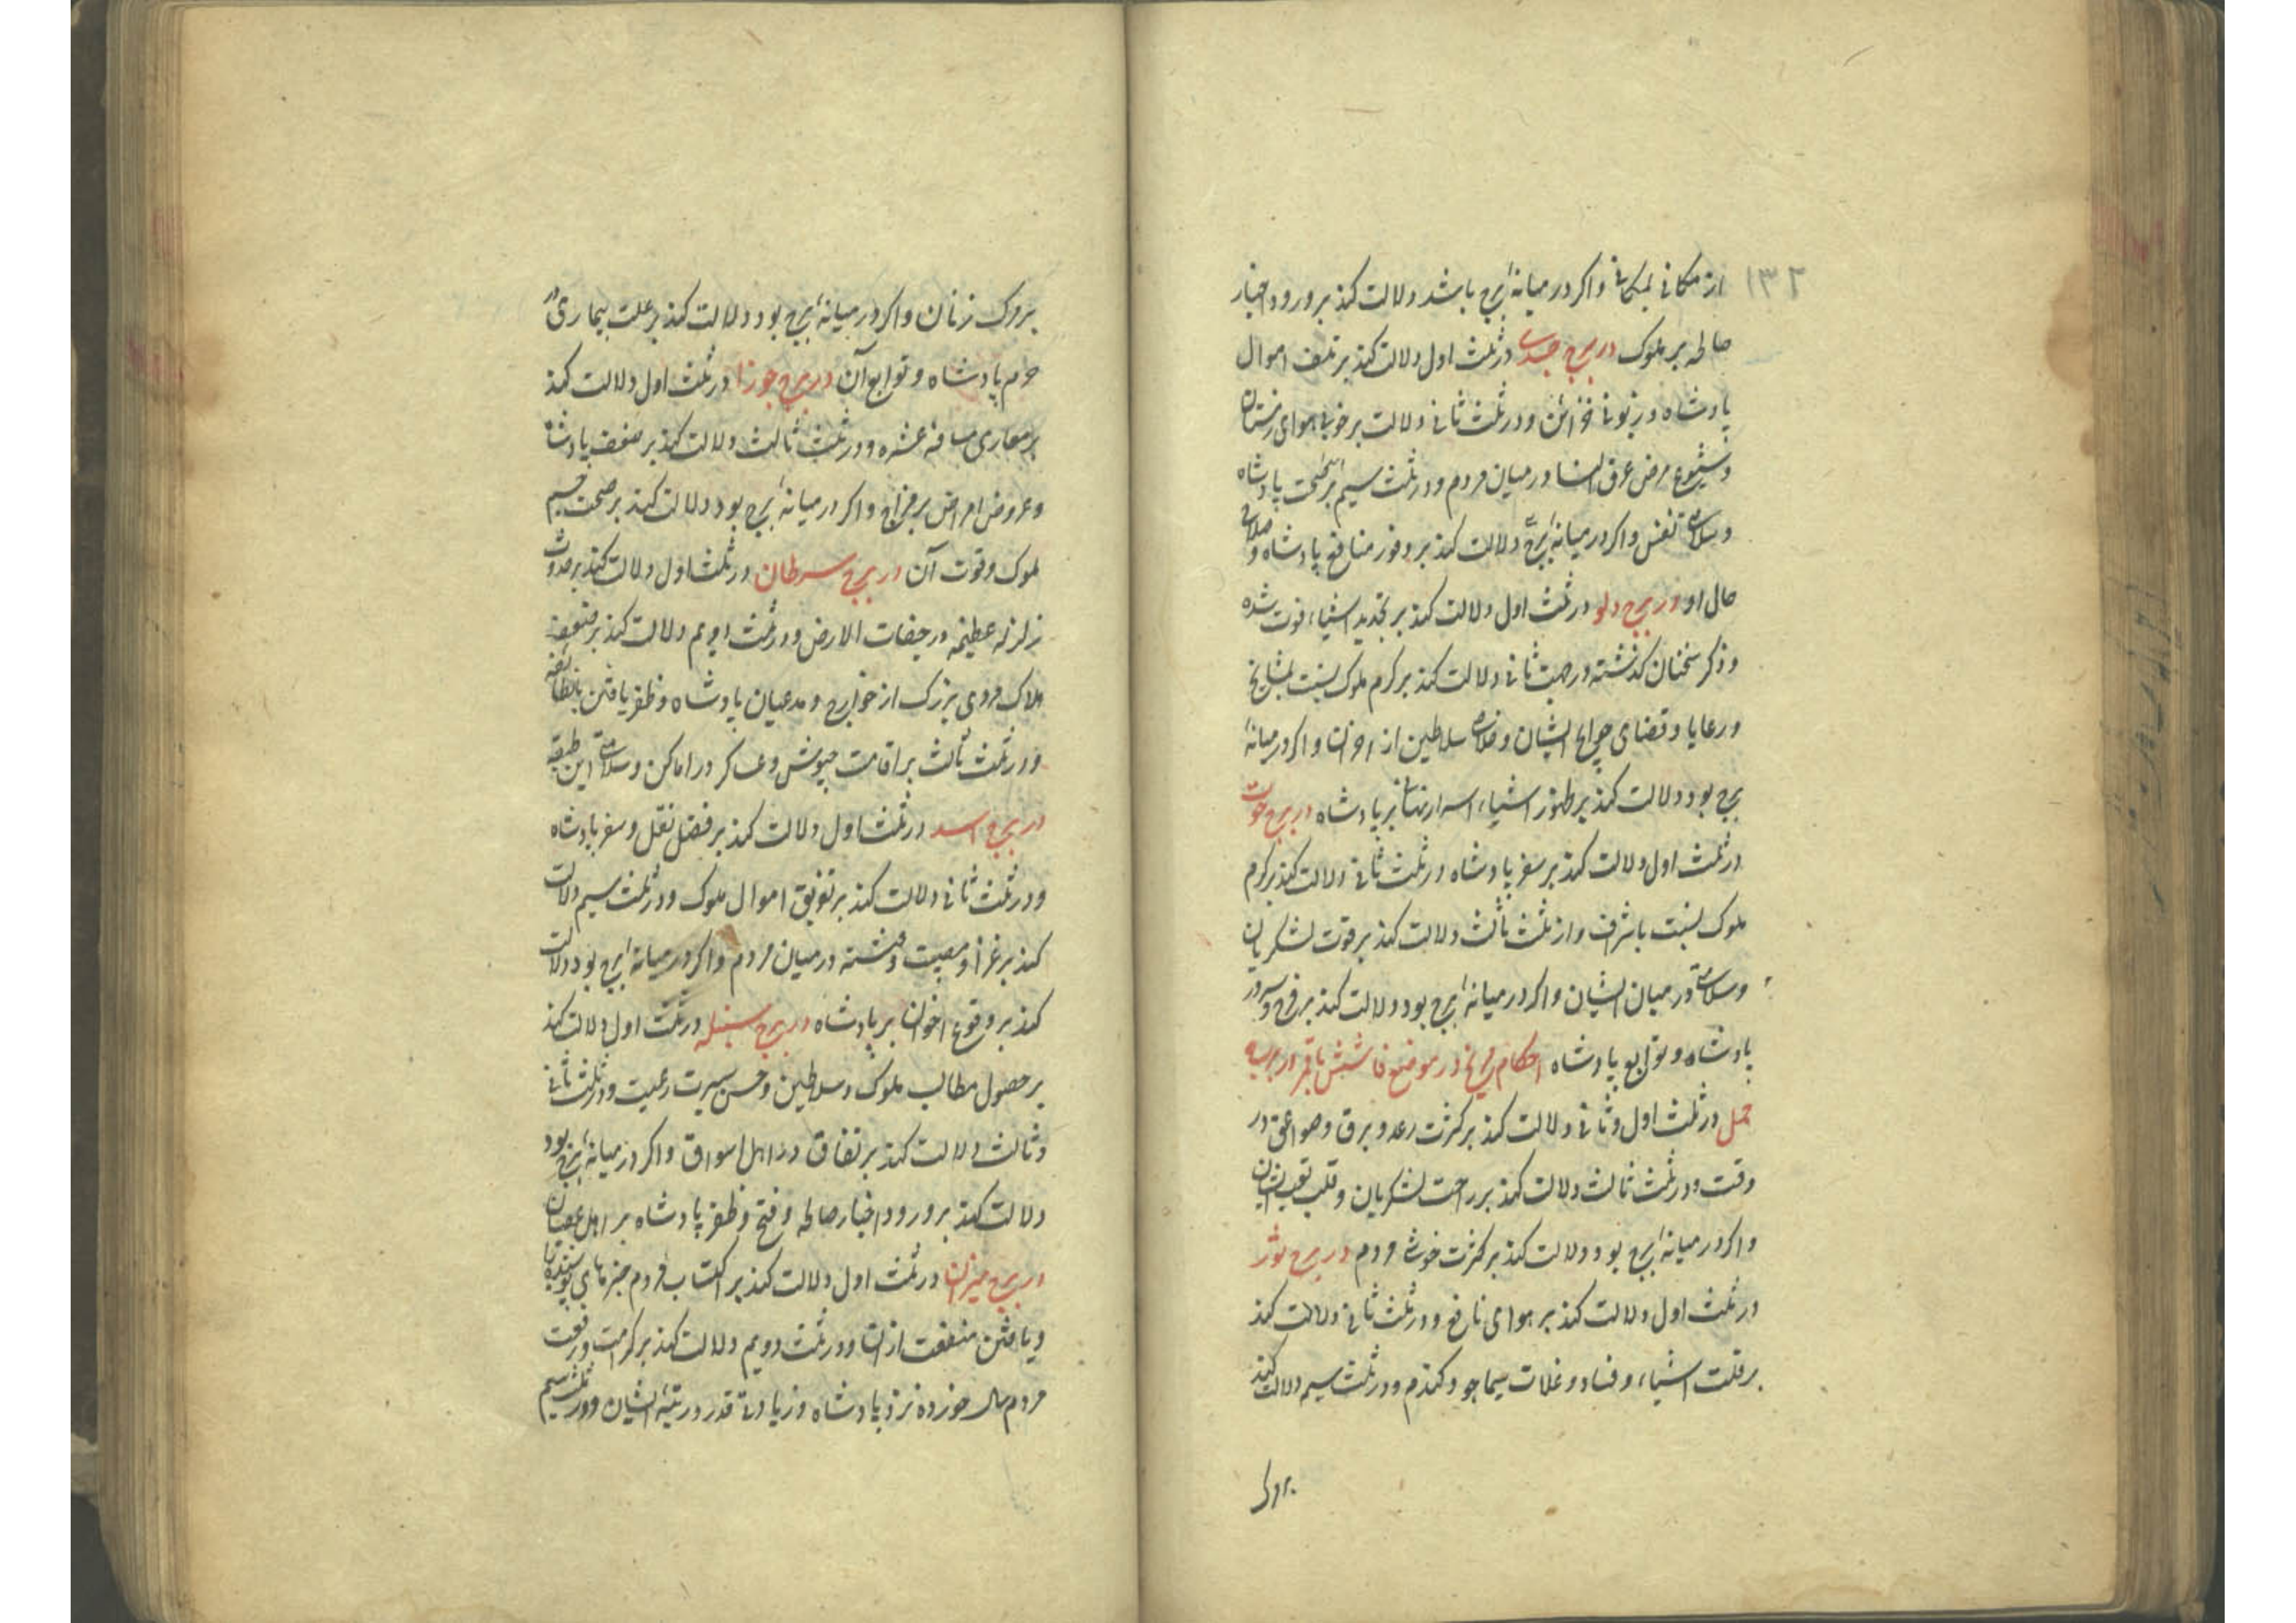 ۱۳۲
از مکانی بمکانی واکر در میانهٔ برج باشد دلالت کند بر ورود اخبار
صالحه بر ملوک در برج جدی در ثلث اول دلالت کند بر تلف اموال
پادشاه و زبونی خزائن و در ثلث ثانی دلالت بر خوبی هوای زمستان
و شیوع مرض عرق النسا در میان مردم و در ثلث سیم بر صحت پادشاه
و سلامتی نفس واکر در میانهٔ برج دلالت کند بر وفور منافع پادشاه و صلاح
حال او در برج دلو در ثلث اول دلالت کند بر تجدید اشیاء فوت شده
و ذکر سخنان کذشته در ثانی دلالت کند بر کرم ملوک نسبت بمشایخ
و رعایا و قضای حوایج ایشان و خلاصی سلاطین از احزان واکر در میانهٔ
برج بود دلالت کند بر ظهور اشیاء اسرار نهانی بر پادشاه در برج حوت
در ثلث اول دلالت کند بر سفر پادشاه در ثلث ثانی دلالت کند بر کرم
ملوک نسبت باشراف و از ثلث ثالث دلالت کند بر قوت لشکریان
و سلامتی در میان ایشان واکر در میانهٔ برج بود دلالت کند بر فرح و سرور
پادشاه و توابع پادشاه احکام مریخ در موضع در برج
حمل در ثلث اول و ثانی دلالت کند بر کثرت رعد و برق و صواعق در
وقت و در ثلث ثالث دلالت کند بر راحت لشکریان و قلت تعب ایشان
واکر در میانهٔ برج بود دلالت کند بر کثرت مردم در برج ثور
در ثلث اول دلالت کند بر هوای نافع و در ثلث ثانی دلالت کند
بر قلت اشیاء و فساد و غلات سیما جو و کندم و در ثلث سیم دلالت کند
بروک
بروک زنان واکر در میانهٔ برج بود دلالت کند بر علت بیماری در
حرم پادشاه و توابع آن در برج جوزا در ثلث اول دلالت کند
بر و در ثلث ثالث دلالت کند بر ضعف پادشاه
و عروض امراض بر مزاج واکر در میانهٔ برج بود دلالت کند بر صحت جسم
ملوک و قوت آن در برج سرطان در ثلث اول دلالت کند بر حدوث
زلزله عظیمه و رجفات الارض و در ثلث دویم دلالت کند بر
هلاک مردی بزرک از خوارج و مدعیان پادشاه و ظفر یافتن
و در ثلث ثالث بر اقامت جیوش و عساکر در اماکن و سلامتی این طبقه
در برج اسد در ثلث اول دلالت کند بر فضل نقل و سفر پادشاه
و در ثلث ثانی دلالت کند بر تفریق اموال ملوک و در ثلث سیم دلالت
کند بر عزا و مصیبت در میان مردم واکر در میانهٔ برج بود دلالت
کند بر وقوع احزان بر پادشاه در برج سنبله در ثلث اول دلالت کند
بر حصول مطالب ملوک و سلاطین و حسن سیرت رعیت و در ثلث ثانی
و ثالث دلالت کند بر نفاق در اهل اسواق واکر در میانهٔ برج بود
دلالت کند بر ورود اخبار صالحه و فتح و ظفر پادشاه بر اهل عصیان
در برج میزان در ثلث اول دلالت کند بر اکتساب مردم
و یافتن منفعت از آن و در ثلث دویم دلالت کند بر کرامت و رفعت
مردم سال خورده نزد پادشاه و زیادتی قدر و رتبهٔ ایشان و در ثلث سیم